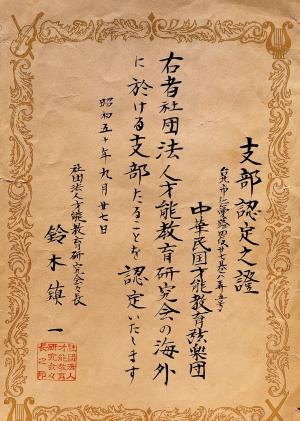 支部認定之證
中華民国才能教育弦楽団
右者社団法人才能教育研究会の海外
に於ける支部たることを認定いたします
昭和五十年九月廿七日
社団法人才能教育研究会々長
鈴木鎮一
社団法人
才能教育
研究会々
長之印